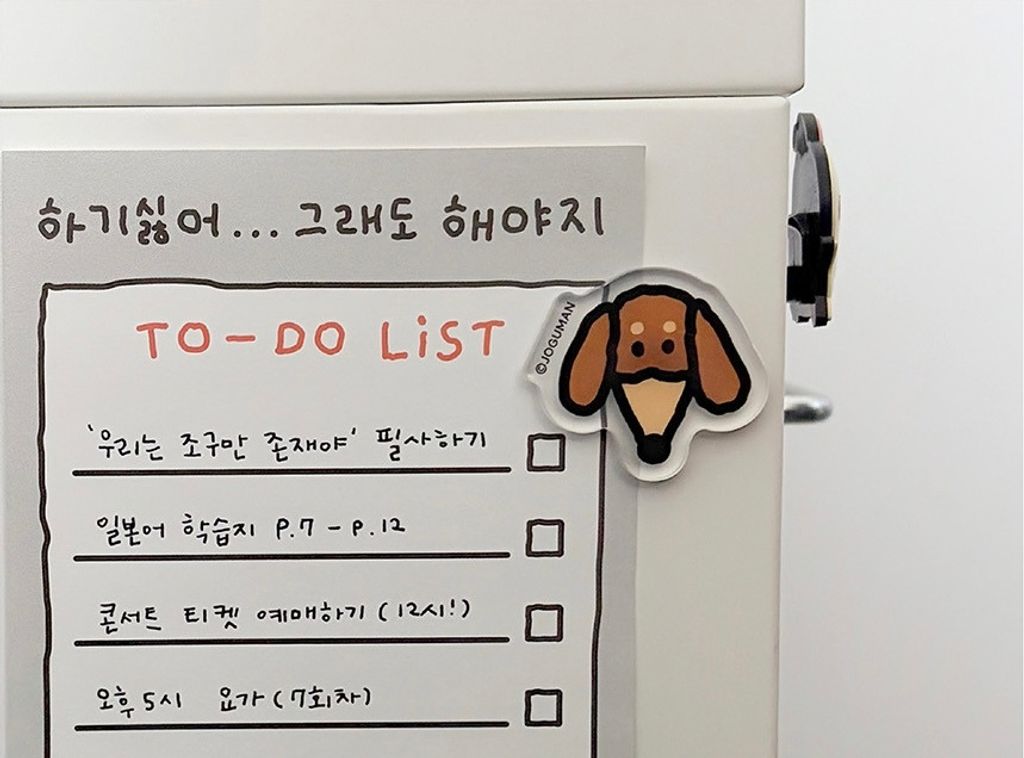 하기싫어... 그래도 해야지
TO-DO LiST
©JOGUMAN
'우리는 조구만 존재야' 필사하기
일본어 학습지 P.7 - P.12
콘서트 티켓 예매하기 (12시!)
오후 5시 요가 (7회차)